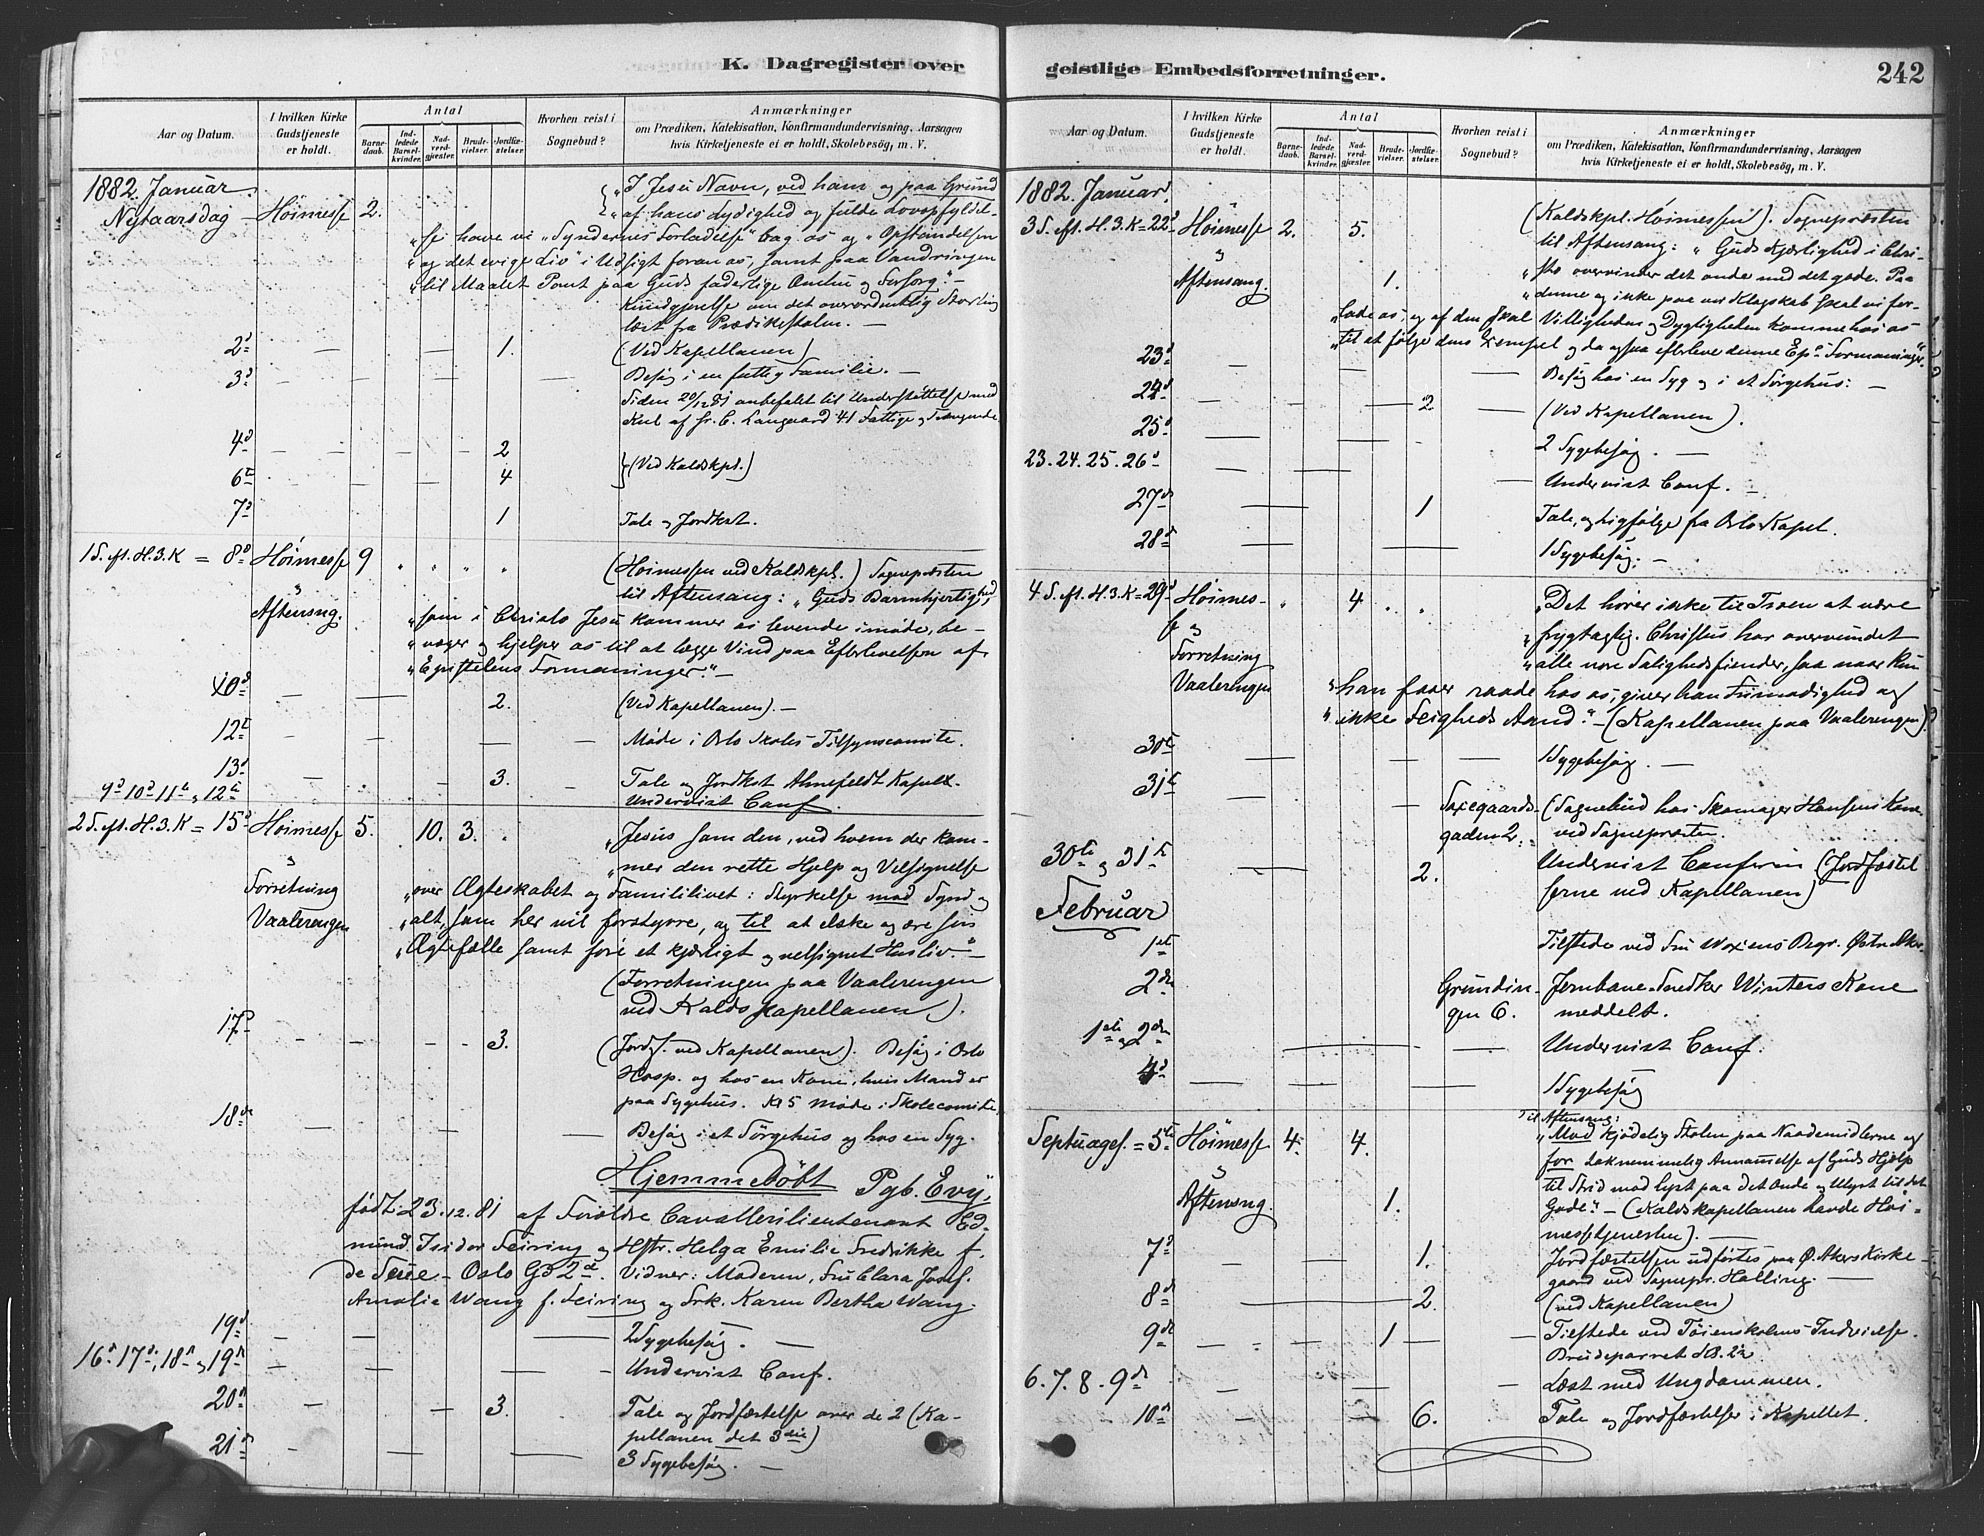 K. Dagregister over
Aar og Datum.
I hvilken Kirke Gudstjeneste er holdt.
Antal
Barnedaab.
Indledede Barselkvinder.
Nadverdgjæster.
Brudevielser.
Jordfæstelser.
Hvorhen reist i Sognebud?
Anmærkninger
om Prædiken, Katekisation, Konfirmandundervisning, Aarsagen
hvis Kirketjeneste ei er holdt, Skolebesøg, m. V.
1882 Januar
„I Jesu Navn, ved ham og paa Grund
Nytaarsdag – Høimesse 2. „af hans Lydighed og fulde Lovopfyldel-
„se have vi „Syndernes Forladelse“ bag os og „Opstandelsen
„og det evige Liv“ i Udsigt foran os, samt paa Vandringen
„til Maalet Pant paa Guds faderlige Omhu og Forsorg.“ –
Kundgjørelse om det overordentlig Storting
læst fra Prædikestolen. –
2d – – 1. (Ved Kapellanen)
3d – – – – – Besøg i en fattig Familie. –
Siden 20/12 81 anbefalet til Understøttelse med
Kul af Hr. C. Langaard 41 Fattige og Trængende.
4d – – – – 2
6te – – – – 4 (Ved Kaldskpl.)
7d – – – – 1 Tale og Jordkast.
1 S. eft. H. 3. K = 8d Høimesse 9 „ „ „ „ (Høimessen ved Kaldskpl.) Sognepræsten
„ Aftensng. til Aftensang: „Guds Barmhjertighed,
„som i Christo Jesu kommer os levende imøde, be-
„væger og hjelper os til at lægge Vind paa Efterlevelsen af
„Epistelens Formaninger.“ –
10d – – 2. (Ved Kapellanen). –
12te – – – – Møde i Oslo Skoles Tilsynscomite.
13d – – 3. – Tale og Jordkst Ahnefeldt Kapell.
9d 10d 11te, 12te Undervist Conf.
2 S. eft. H. 3. K = 15d Høimesse 5. 10. 3. „ „Jesus som den, ved hvem der kom-
„mer den rette Hjelp og Velsignelse
Forretning „over Ægteskabet og Familielivet: Styrkelse mod Synd og
Vaalerengen „alt, som her vil forstyrre, og til at elske og ære sin
„Ægtefælle samt føre et kjærligt og velsignet Husliv.“ –
(Forretningen paa Vaalerengen
ved Kaldskapellanen).
17d – – – – 3. (Jordf. ved Kapellanen). Besøg i Oslo
Hosp. og hos en Kone, hvis Mand er
paa Sygehus. Kl 5 Møde i Skolecomite
18de – – – – Besøg i et Sørgehus og hos en Syg.
Hjemmedøbt Pgb. Evy,
født 23.12.81 af Forældre Cavallerilieutenant Ed-
mund Isidor Feiring og Hstr. Helga Emilie Fredrikke f.
de Seue – Oslo Gd 2de. Vidner: Moderen, Fru Clara Josef.
Amalie Wang f. Feiring og Frk. Karen Bertha Wang.
19d – – – 2 Sygebesøg. –
16d 17d, 18d, 19d – – – Undervist Conf.
20d – – 3. Tale og Jordfæstelse over de 2 (Ka-
pellanen det 3die)
21de – – – 3 Sygebesøg. –
geistlige Embedsforretninger.
242
Aar og Datum.
I hvilken Kirke Gudstjeneste er holdt.
Antal
Barnedaab.
Indledede Barselkvinder.
Nadverdgjæster.
Brudevielser.
Jordfæstelser.
Hvorhen reist i Sognebud?
Anmærkninger
om Prædiken, Katekisation, Konfirmandundervisning, Aarsagen
hvis Kirketjeneste ei er holdt, Skolebesøg, m. V.
1882. Januar.
3 S. eft. H. 3. K = 22d Høimesse 2. 5. (Kaldskpl. Høimessen). Sognepræsten
„ til Aftensang: „Guds Kjærlighed i Chri-
Aftensang. 1. „sto overvinder det onde med det gode. Paa
„denne og ikke paa vor Klogskab skal vi for-
„lade os, og af den skal Villigheden og Dygtigheden komme hos os
„til at følge dens Exempel og da ogsaa efterleve denne Ep. Formaninger.“
23d – – – Besøg hos en Syg og i et Sørgehus. –
24de – – 2 – (Ved Kapellanen).
25d – – – 2 Sygebesøg. –
23. 24. 25. 26d – – – Undervist Conf. –
27de – 1 Tale, og Ligfølge fra Oslo Kapel.
28de – – 1 Sygebesøg. –
4 S. eft. H. 3. K = 29d Høimes- „ 4 „ „ „Det hører ikke til Troen at være
se „ „frygtagtig. Christus har overvundet
Forretning „alle vore Salighedsfiender, saa naar kun
Vaalerengen „han faaer raade hos os, giver han Frimodighed og
„ikke Feigheds Aand.“ – (Kapellanen paa Vaalerengen).
30te – – – 1 Sygebesøg. –
31te – – – Saxegaards- (Sognebud hos Skomager Hansens Kone
gaden 2. ved Sognepræsten.
30te og 31te – – 2. Undervist Conf (Jordfæstel
serne ved Kapellanen)
Februar
1ste Tilstede ved Fru Begr. Østre Aker.
2den Grundin- Jernbane-Snedker Winters Kone
gen 6. meddelt.
1ste, 2den – – Undervist Conf.
4d – – – – 1 Sygebesøg
Til Aftensang:
Septuages. = 5te Høimesse 4. 4. „Mod kjødelig Stolen paa Naademidlerne og
„ for taknemmelig Annammelse af Guds Hjælp
Aftensng. 1. til Strid mod Lyst paa det Onde og Ulyst til det
Gode.“ – (Kaldskapellanen havde Høi-
messetjenesten). –
7d – – 1. Jordfæstelsen udførtes paa Ø. Akers Kirke-
gaard ved Sognepr. Halling. –
8de – 2. (ved Kapellanen)
9de – – 1 – Tilstede ved Tøienskolens Indvielse.
Brudeparret
6. 7. 8. 9de – – – Læst med Ungdommen.
10de – – 6. Tale og Jordfæstelser i Kapellet.